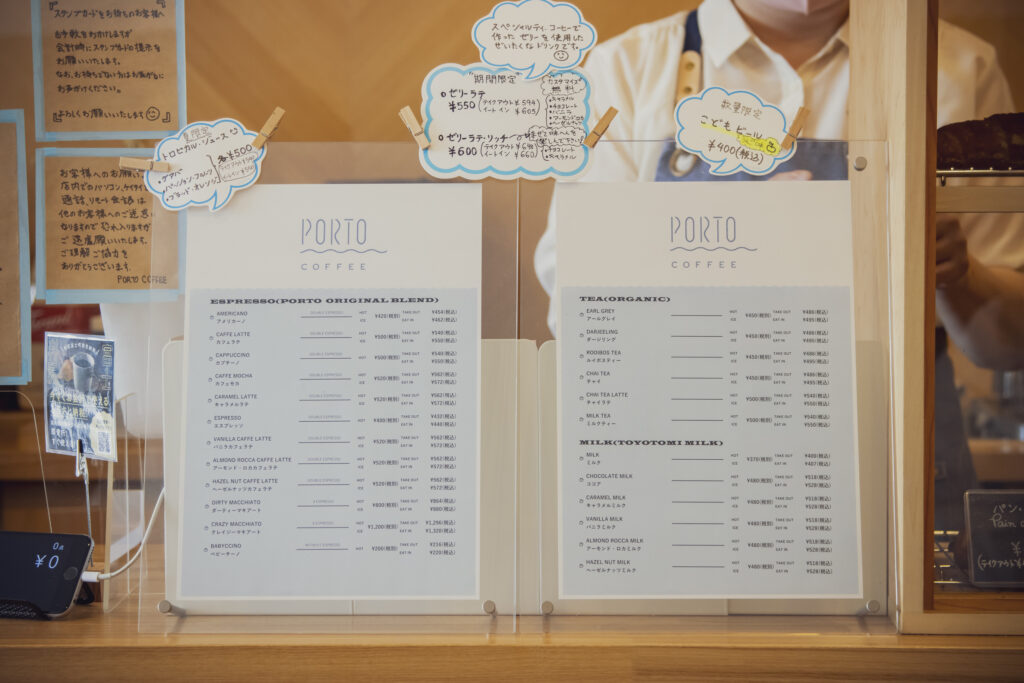 『スタンプカードをお持ちのお客様へ
お手数をおかけしますが
会計時にスタンプカードの提示を
お願いいたします。
なお、お持ちでない方はお気がるに
お声がけください。
よろしくお願いいたします
お客様へのお願い
店内でのパソコン、ケイタイ
通話、リモート会議は
他のお客様へのご迷惑に
なりますので恐れ入りますが
ご遠慮願いいたします。
ご理解ご協力を
ありがとうございます。
PORTO COFFEE
限定
トロピカル・ジュース
グアバ
パッション・フルーツ
ブラッド・オレンジ
各¥500
スペシャルティ コーヒーで
作ったゼリーを使用した
ぜいたくなドリンクです。
"期間限定"
ゼリーラテ
¥550 テイクアウト ¥594
イートイン ¥605
ゼリーラテ・リッチ
¥600 テイクアウト ¥648
イートイン ¥660
カスタマイズ
無料
キャラメル
チョコレート
バニラ
アーモンドロカ
ヘーゼルナッツ
チョコレート
キャラメル
数量限定
こどもビール
¥400(税込)
PORTO
COFFEE
ESPRESSO(PORTO ORIGINAL BLEND)
AMERICANO DOUBLE ESPRESSO HOT ¥420(税別) TAKE OUT ¥454(税込)
アメリカーノ ICE EAT IN ¥462(税込)
CAFFE LATTE DOUBLE ESPRESSO HOT ¥500(税別) TAKE OUT ¥540(税込)
カフェラテ ICE EAT IN ¥550(税込)
CAPPUCCINO DOUBLE ESPRESSO HOT ¥500(税別) TAKE OUT ¥540(税込)
カプチーノ ICE EAT IN ¥550(税込)
CAFFE MOCHA DOUBLE ESPRESSO HOT ¥520(税別) TAKE OUT ¥562(税込)
カフェモカ ICE EAT IN ¥572(税込)
CARAMEL LATTE DOUBLE ESPRESSO HOT ¥520(税別) TAKE OUT ¥562(税込)
キャラメルラテ ICE EAT IN ¥572(税込)
ESPRESSO DOUBLE ESPRESSO HOT ¥400(税別) TAKE OUT ¥432(税込)
エスプレッソ ICE EAT IN ¥440(税込)
VANILLA CAFFE LATTE DOUBLE ESPRESSO HOT ¥520(税別) TAKE OUT ¥562(税込)
バニラカフェラテ ICE EAT IN ¥572(税込)
ALMOND ROCCA CAFFE LATTE DOUBLE ESPRESSO HOT ¥520(税別) TAKE OUT ¥562(税込)
アーモンド・ロカカフェラテ ICE EAT IN ¥572(税込)
HAZEL NUT CAFFE LATTE DOUBLE ESPRESSO HOT ¥520(税別) TAKE OUT ¥562(税込)
ヘーゼルナッツカフェラテ ICE EAT IN ¥572(税込)
DIRTY MACCHIATO HOT ¥800(税別) TAKE OUT ¥864(税込)
ダーティーマキアート ICE EAT IN ¥880(税込)
CRAZY MACCHIATO HOT ¥1,200(税別) TAKE OUT ¥1,296(税込)
クレイジーマキアート ICE EAT IN ¥1,320(税込)
BABYCCINO WITHOUT ESPRESSO HOT ¥200(税別) TAKE OUT ¥216(税込)
ベビーチーノ EAT IN ¥220(税込)
PORTO
COFFEE
TEA(ORGANIC)
EARL GREY HOT ¥450(税別) TAKE OUT ¥486(税込)
アールグレイ ICE EAT IN ¥495(税込)
DARJEELING HOT ¥450(税別) TAKE OUT ¥486(税込)
ダージリング ICE EAT IN ¥495(税込)
ROOIBOS TEA HOT ¥450(税別) TAKE OUT ¥486(税込)
ルイボスティー ICE EAT IN ¥495(税込)
CHAI TEA HOT ¥450(税別) TAKE OUT ¥486(税込)
チャイ ICE EAT IN ¥495(税込)
CHAI TEA LATTE HOT ¥500(税別) TAKE OUT ¥540(税込)
チャイラテ ICE EAT IN ¥550(税込)
MILK TEA HOT ¥500(税別) TAKE OUT ¥540(税込)
ミルクティー ICE EAT IN ¥550(税込)
MILK(TOYOTOMI MILK)
MILK HOT ¥370(税別) TAKE OUT ¥400(税込)
ミルク ICE EAT IN ¥407(税込)
CHOCOLATE MILK HOT ¥480(税別) TAKE OUT ¥518(税込)
ココア ICE EAT IN ¥528(税込)
CARAMEL MILK HOT ¥480(税別) TAKE OUT ¥518(税込)
キャラメルミルク ICE EAT IN ¥528(税込)
VANILLA MILK HOT ¥480(税別) TAKE OUT ¥518(税込)
バニラミルク ICE EAT IN ¥528(税込)
ALMOND ROCCA MILK HOT ¥480(税別) TAKE OUT ¥518(税込)
アーモンド・ロカミルク ICE EAT IN ¥528(税込)
HAZEL NUT MILK HOT ¥480(税別) TAKE OUT ¥518(税込)
ヘーゼルナッツミルク ICE EAT IN ¥528(税込)
0点
¥0
パン・
Pain
テイクアウト